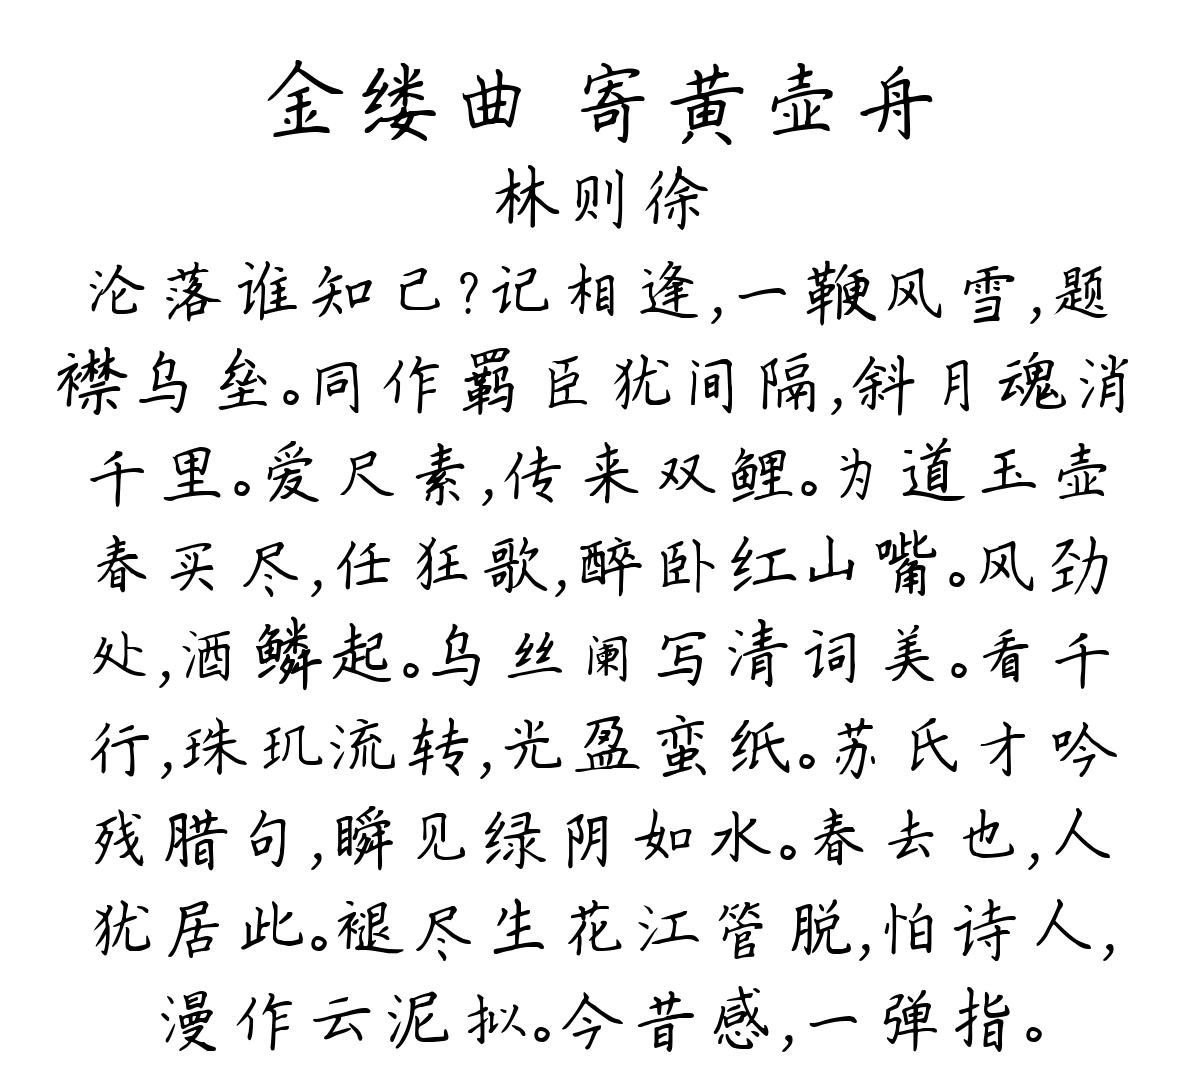 金缕曲 寄黄壶舟
林则徐
沦落谁知己?记相逢,一鞭风雪,题
襟乌垒。同作羁臣犹间隔,斜月魂消
千里。爱尺素,传来双鲤。为道玉壶
春买尽,任狂歌,醉卧红山嘴。风劲
处,酒鳞起。乌丝阑写清词美。看千
行,珠玑流转,光盈蛮纸。苏氏才吟
残腊句,瞬见绿阴如水。春去也,人
犹居此。褪尽生花江管脱,怕诗人,
漫作云泥拟。今昔感,一弹指。